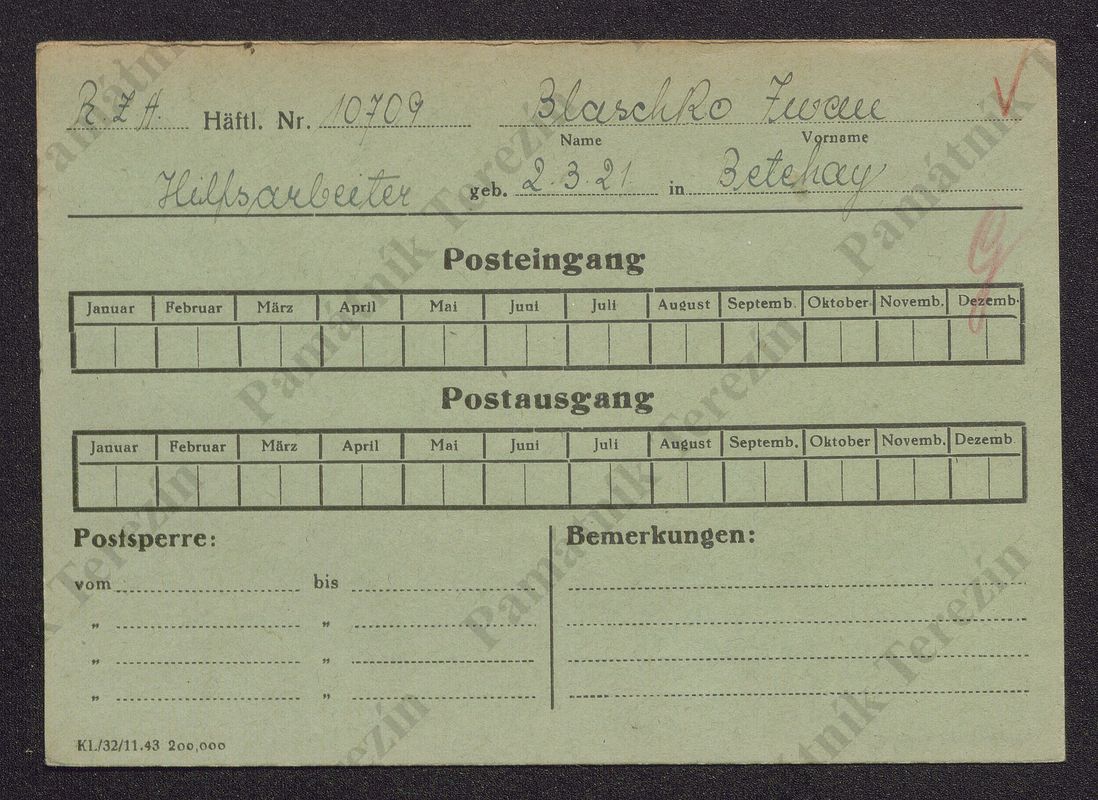 R Z A. Häftl. Nr. 10709 Blaschko Iwan
Name Vorname
Hilfsarbeiter geb. 2.3.21. in Betehay
Posteingang
Januar Februar März April Mai Juni Juli August Septemb. Oktober Novemb. Dezemb.
Postausgang
Januar Februar März April Mai Juni Juli August Septemb. Oktober Novemb. Dezemb.
Postsperre: Bemerkungen:
vom bis
„ „
„ „
„ „
KL/32/11.43 200,000
Památník Terezín